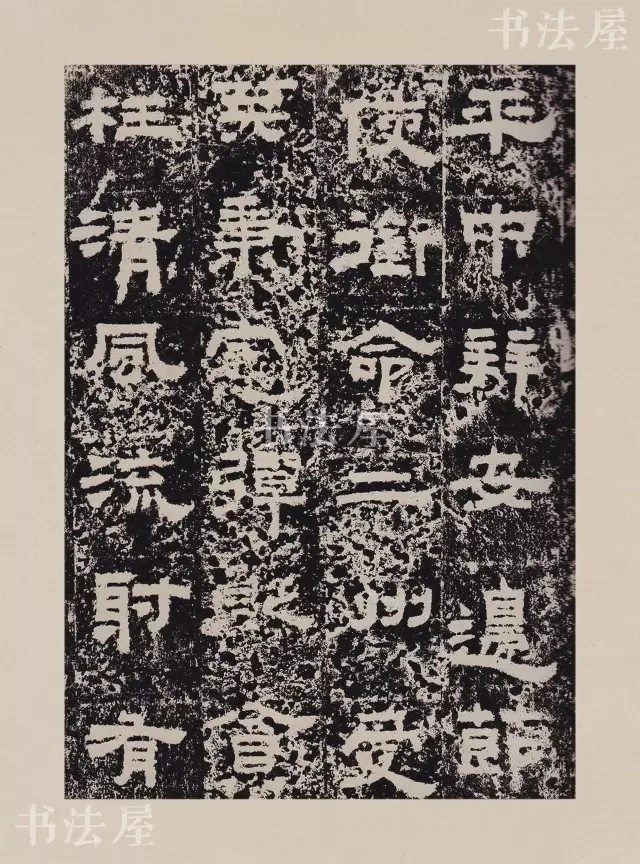 书法屋
平中拜安邊節
使銜命二州受
莢秉憲彈貶貪
枉清風流射有
书法屋
书法屋